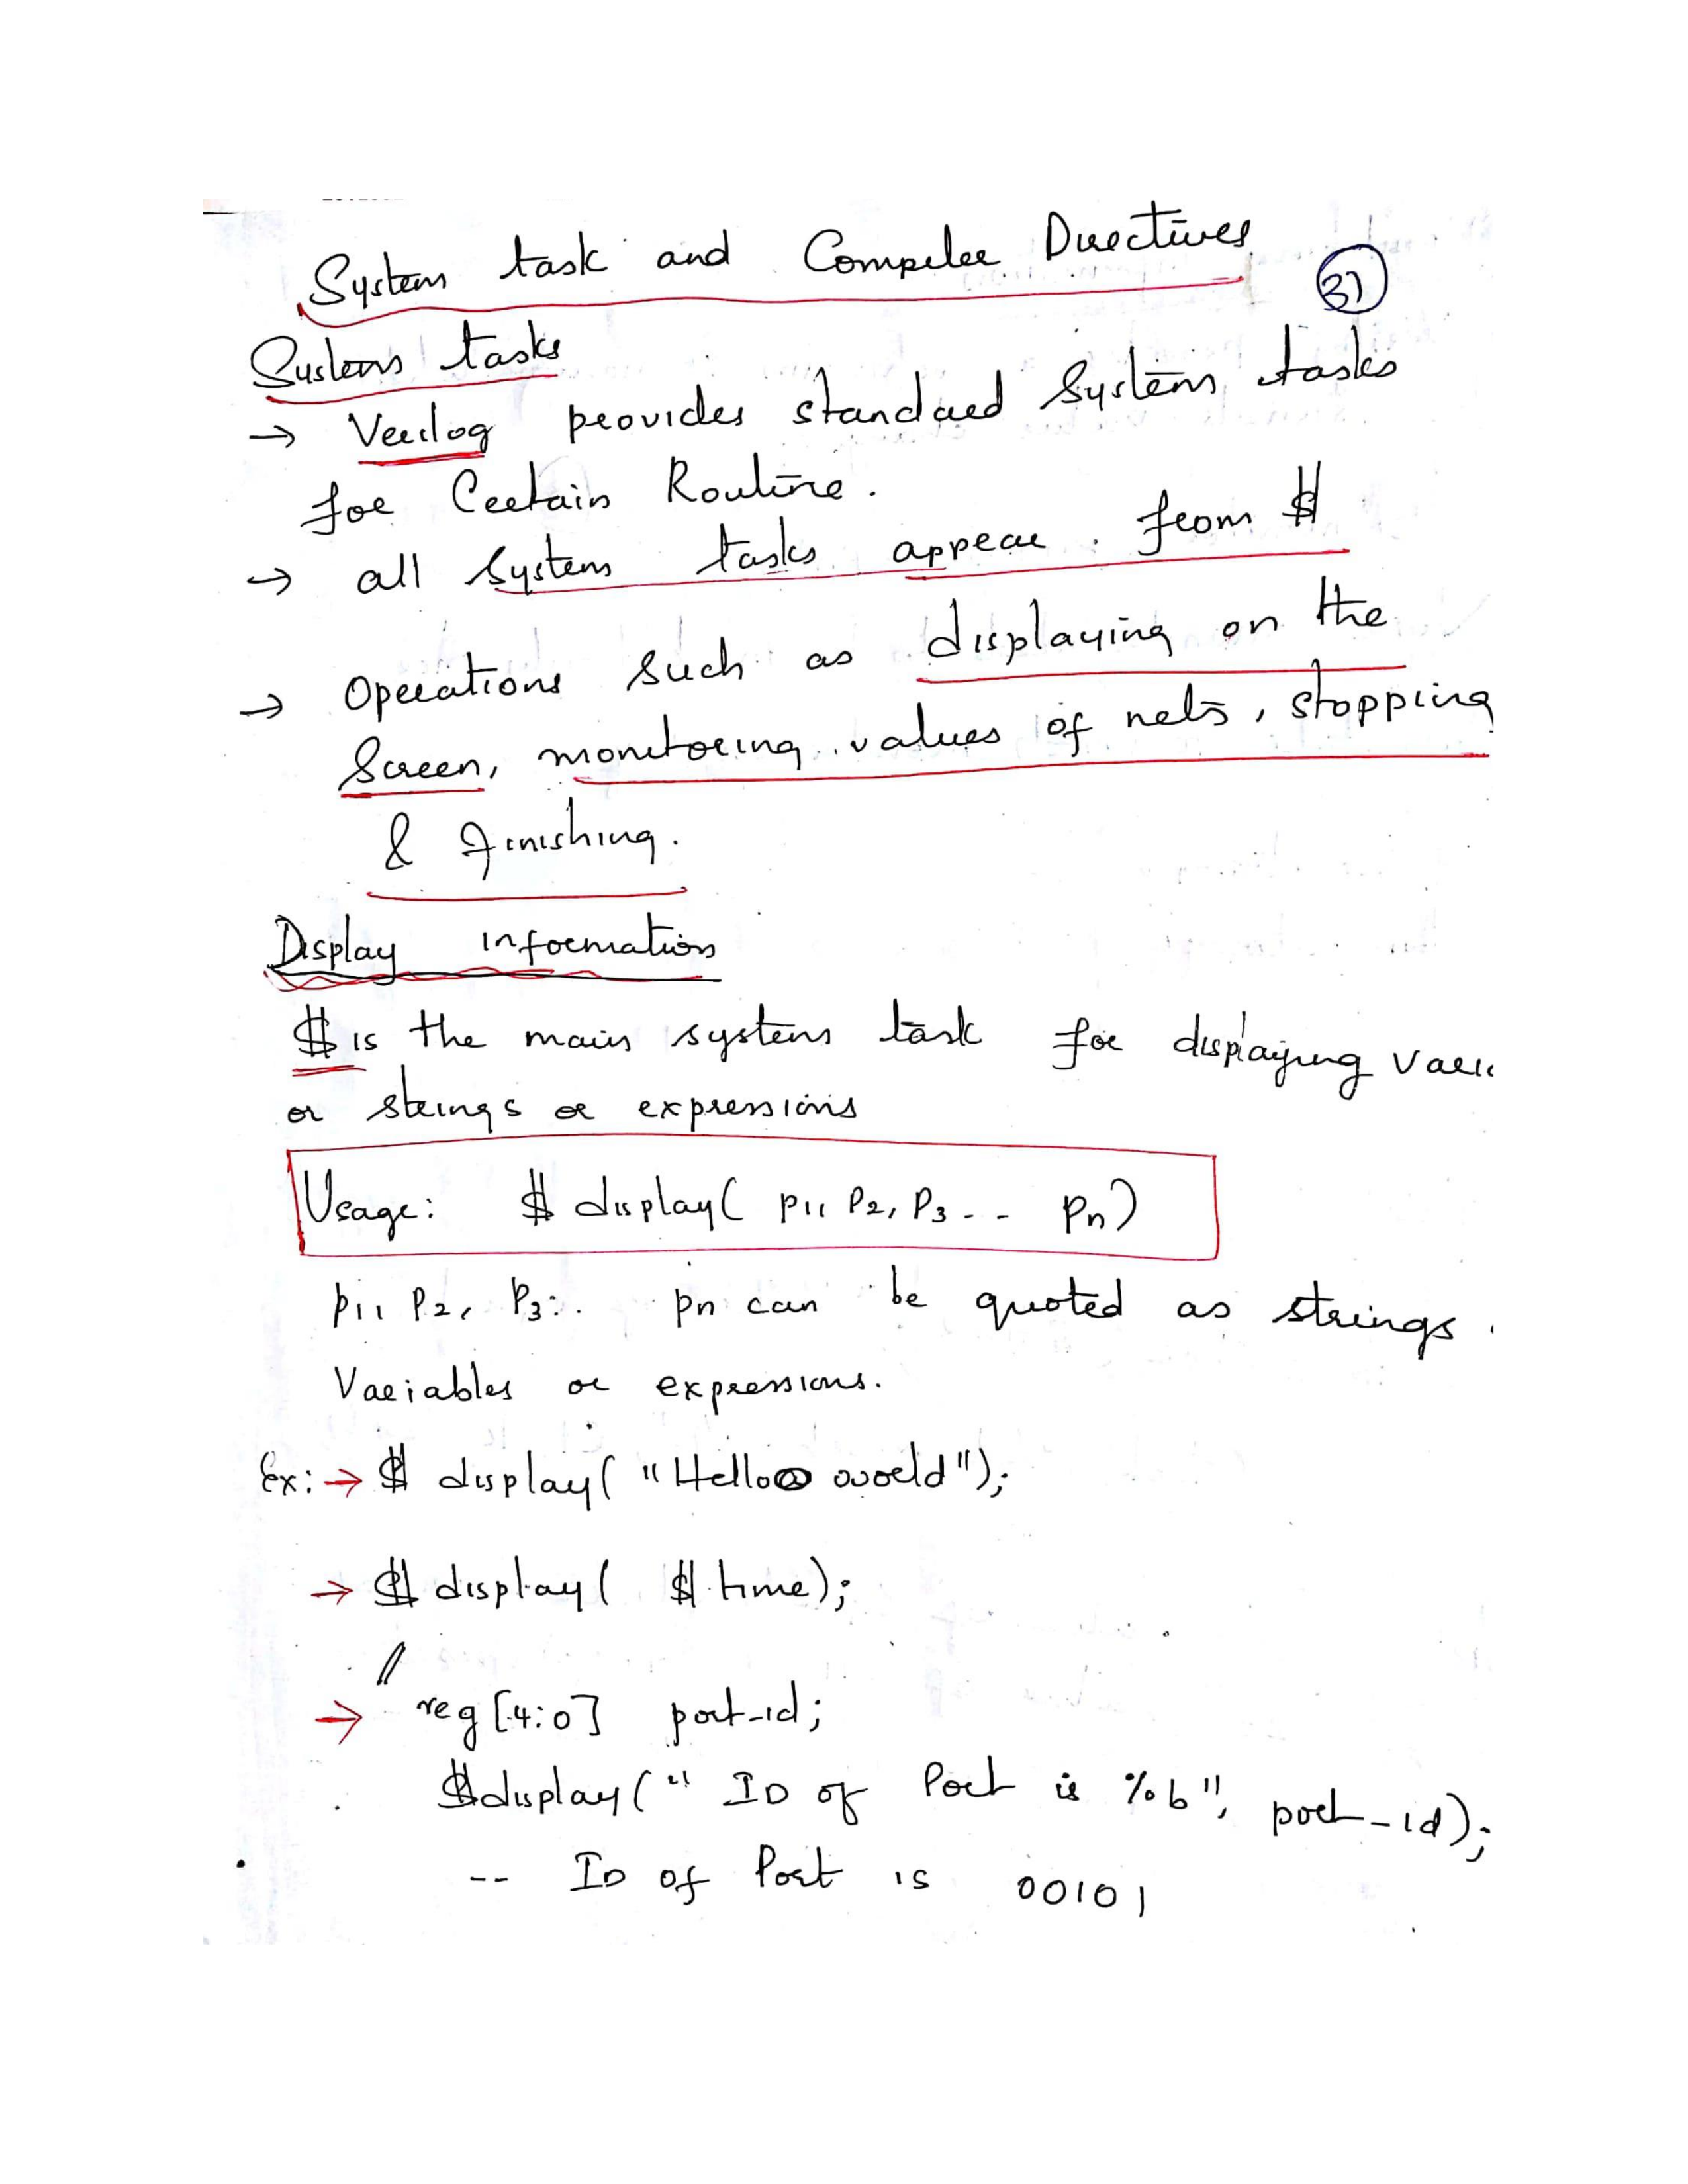 System task and Compiler Directives
31
System tasks
→ Verilog provides standard System tasks
for Certain Routine.
→ all System tasks appear from $
→ Operations such as displaying on the
Screen, monitoring values of nets, stopping
& finishing.
Display information
$ is the main system task for displaying
or strings or expressions
Usage: $ display( p1, P2, P3 -- Pn)
p1, P2, P3.. pn can be quoted as strings.
Variables or expressions.
Ex: → $ display( "Hello world");
→ $ display( $ time);
//
→ reg [4:0] port_id;
$display(" ID of Port is %b", port_id);
-- ID of Port is 00101